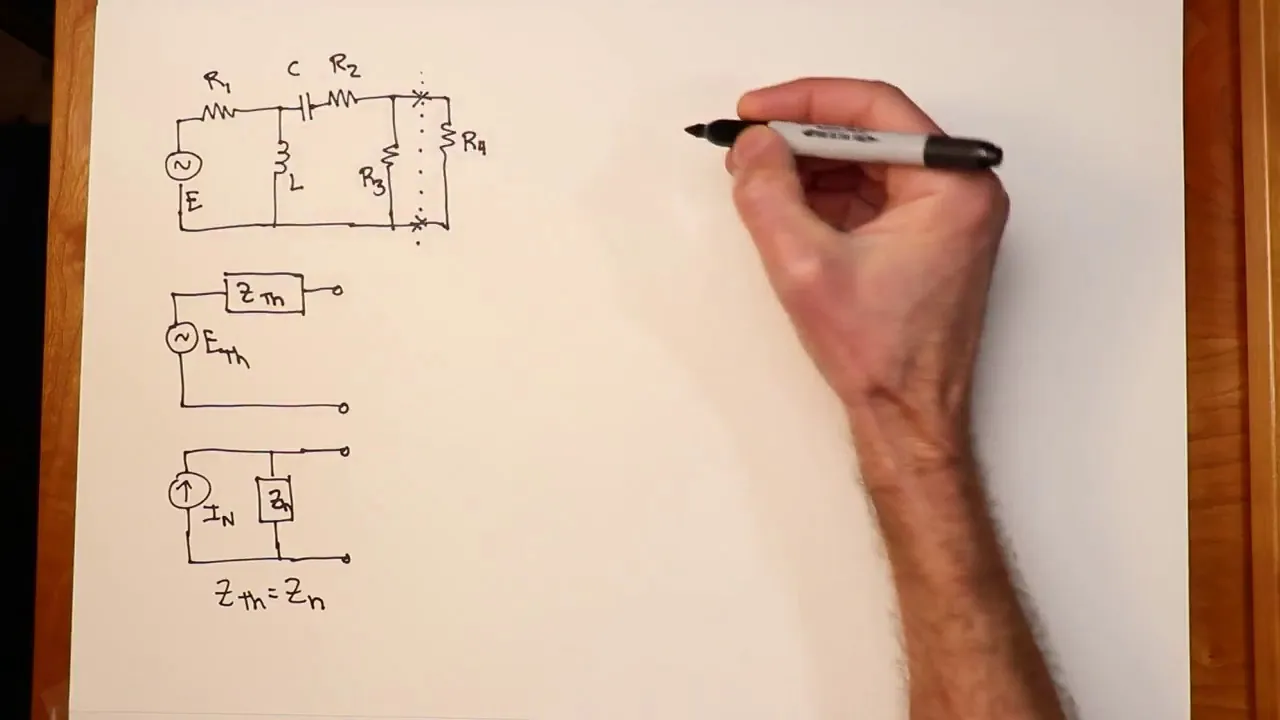 R1 C R2
~ E L R3 R4
Z Th
~ E Th
↑ IN Zn
Z Th = Zn